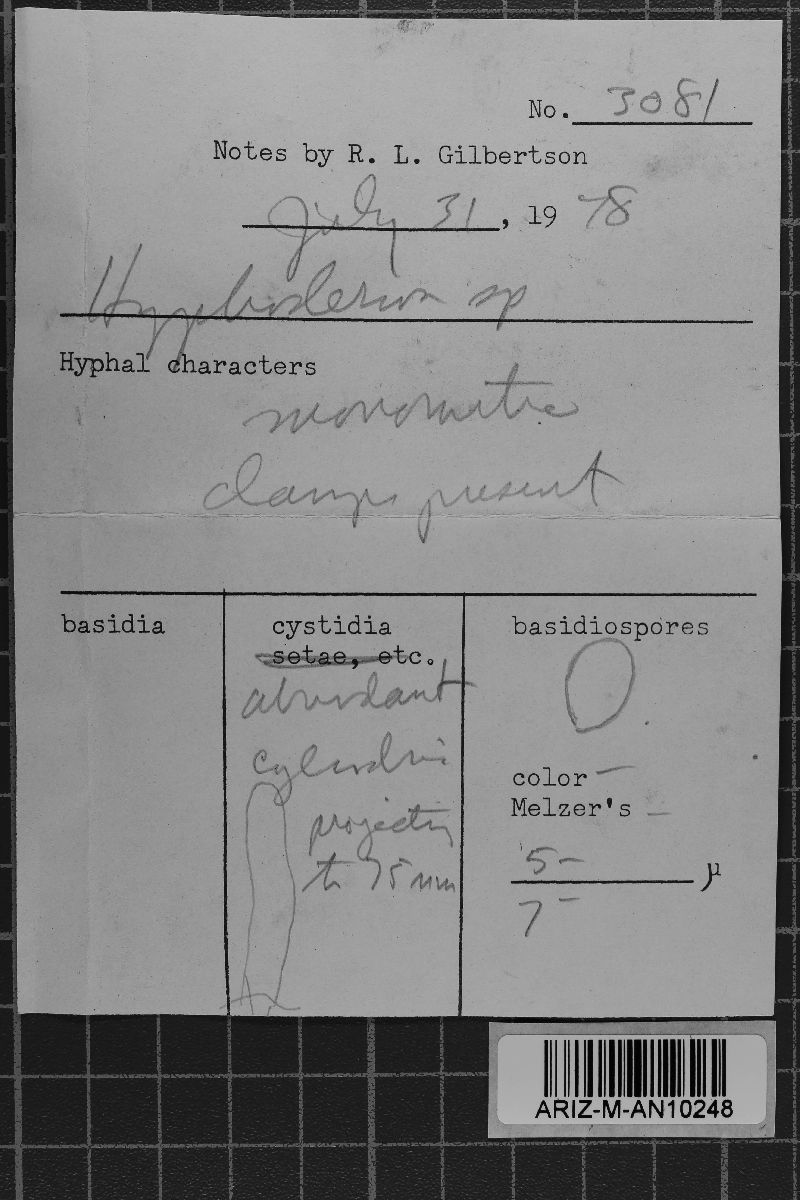 No. 3081
Notes by R. L. Gilbertson
July 31, 1978
Hyphoderma sp
Hyphal characters
monomitic
clamps present
basidia
cystidia
setae, etc.
abundant
cylindric
projecting
to 75 mm
basidiospores
color –
Melzer's –
5 –
µ
7 –
ARIZ-M-AN10248